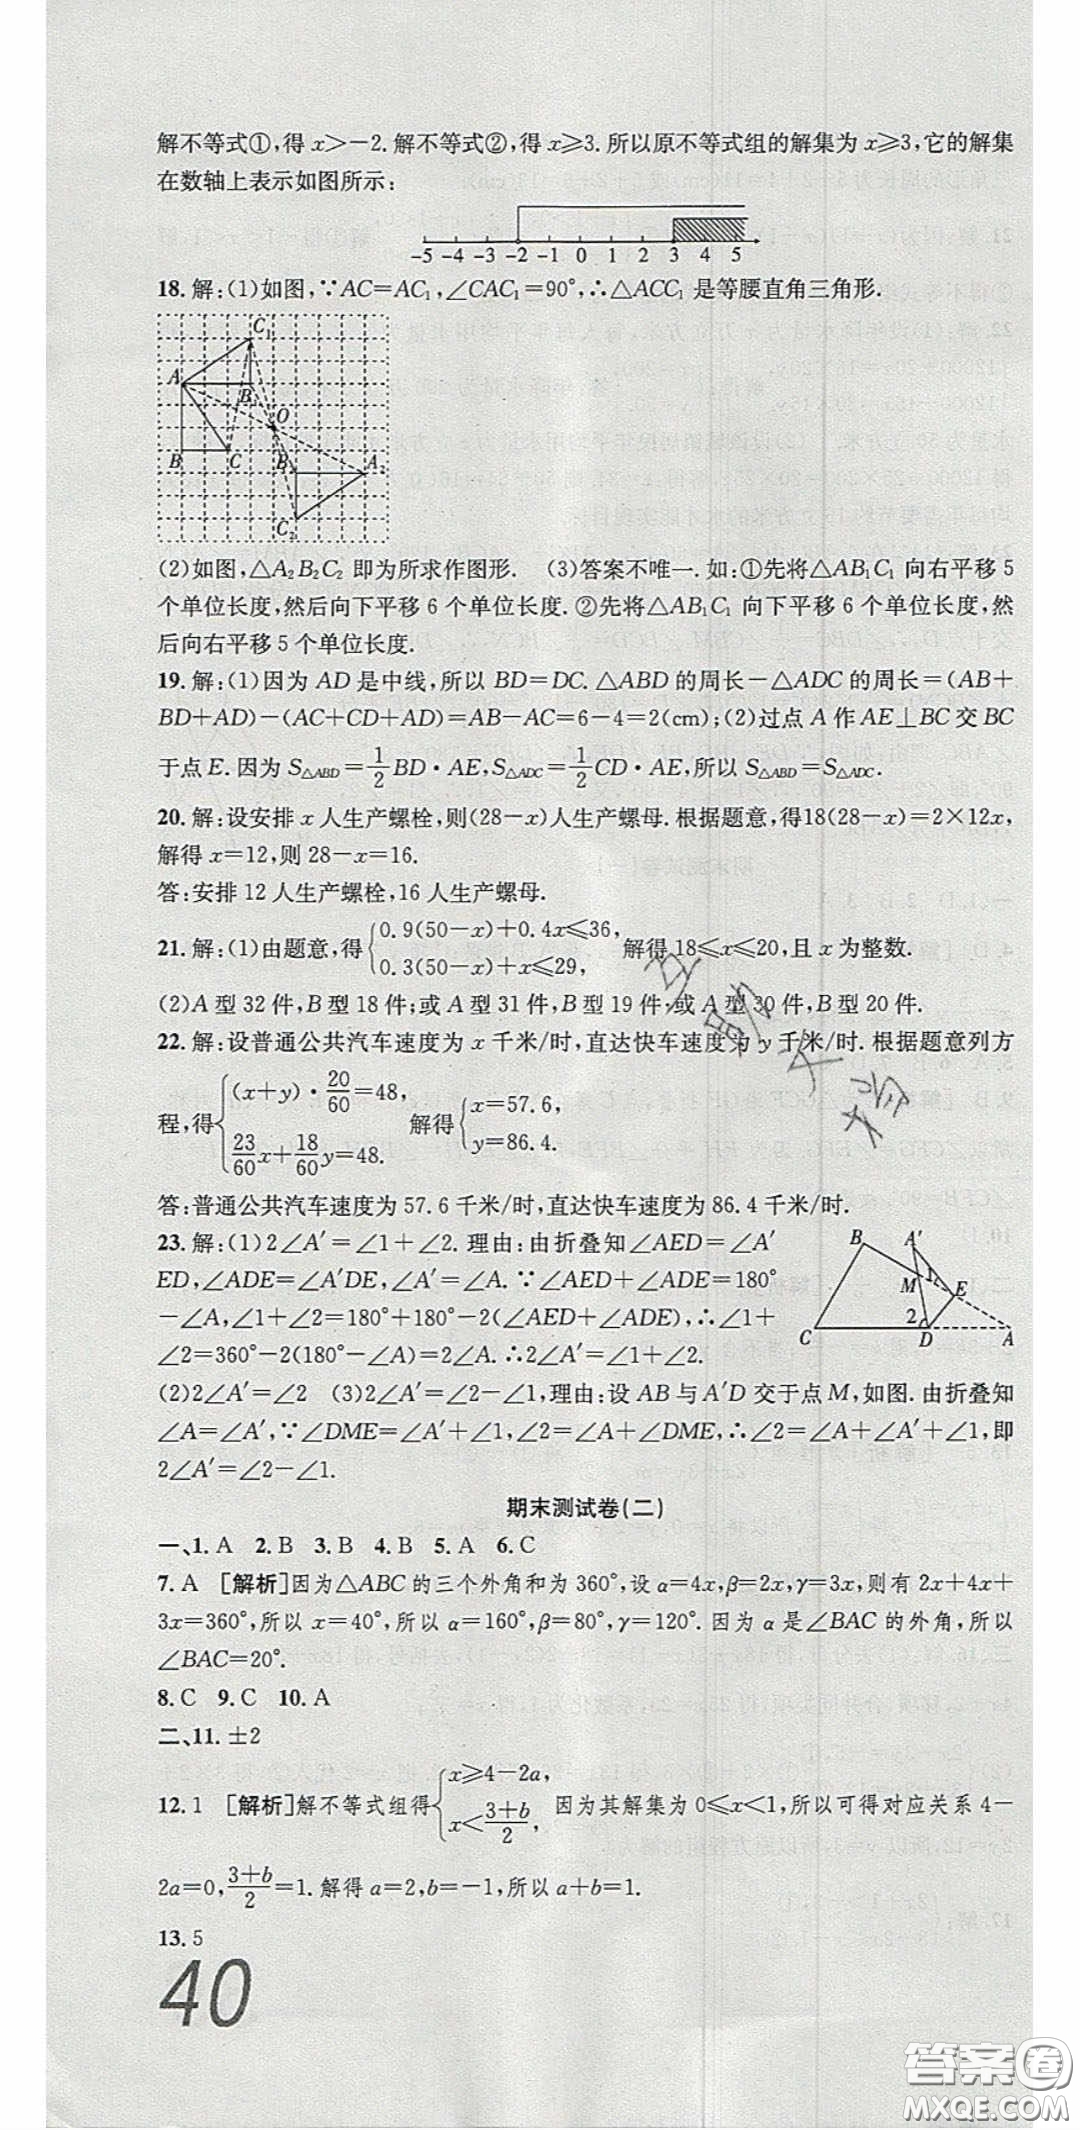 解不等式①,得 x>-2. 解不等式②,得 x≥3. 所以原不等式组的解集为 x≥3,它的解集
在数轴上表示如图所示:
-5 -4 -3 -2 -1 0 1 2 3 4 5
18. 解:(1)如图,∵AC=AC₁,∠CAC₁=90°,∴△ACC₁ 是等腰直角三角形.
C₁
A B₁
O
B C B₂ A₂
C₂
(2)如图,△A₂B₂C₂ 即为所求作图形. (3)答案不唯一. 如:①先将△AB₁C₁ 向右平移 5
个单位长度,然后向下平移 6 个单位长度. ②先将△AB₁C₁ 向下平移 6 个单位长度,然
后向右平移 5 个单位长度.
19. 解:(1)因为 AD 是中线,所以 BD=DC. △ABD 的周长-△ADC 的周长=(AB+
BD+AD)-(AC+CD+AD)=AB-AC=6-4=2(cm);(2)过点 A 作 AE⊥BC 交 BC
于点 E. 因为 S△ABD=1/2 BD·AE,S△ADC=1/2 CD·AE,所以 S△ABD=S△ADC.
20. 解:设安排 x 人生产螺栓,则(28-x)人生产螺母. 根据题意,得18(28-x)=2×12x,
解得 x=12,则 28-x=16.
答:安排 12 人生产螺栓,16 人生产螺母.
21. 解:(1)由题意,得{0.9(50-x)+0.4x≤36, 0.3(50-x)+x≤29, 解得 18≤x≤20,且 x 为整数.
(2)A 型 32 件,B 型 18 件;或 A 型 31 件,B 型 19 件;或 A 型 30 件,B 型 20 件.
22. 解:设普通公共汽车速度为 x 千米/时,直达快车速度为 y 千米/时. 根据题意列方
程,得{(x+y)·20/60=48, 23/60 x+18/60 y=48. 解得{x=57.6, y=86.4.
答:普通公共汽车速度为 57.6 千米/时,直达快车速度为 86.4 千米/时.
23. 解:(1)2∠A′=∠1+∠2. 理由:由折叠知∠AED=∠A′
ED,∠ADE=∠A′DE,∠A′=∠A. ∵∠AED+∠ADE=180°
-∠A,∠1+∠2=180°+180°-2(∠AED+∠ADE),∴∠1+
∠2=360°-2(180°-∠A)=2∠A. ∴2∠A′=∠1+∠2.
B A′
M 1 E
C 2 D A
(2)2∠A′=∠2 (3)2∠A′=∠2-∠1,理由:设 AB 与 A′D 交于点 M,如图. 由折叠知
∠A=∠A′,∵∠DME=∠A′+∠1,∠2=∠A+∠DME,∴∠2=∠A+∠A′+∠1,即
2∠A′=∠2-∠1.
期末测试卷(二)
一、1. A 2. B 3. B 4. B 5. A 6. C
7. A [解析]因为△ABC 的三个外角和为 360°,设 α=4x,β=2x,γ=3x,则有 2x+4x+
3x=360°,所以 x=40°,所以 α=160°,β=80°,γ=120°. 因为 α 是∠BAC 的外角,所以
∠BAC=20°.
8. C 9. C 10. A
二、11. ±2
12. 1 [解析]解不等式组得{x≥4-2a, x<(3+b)/2, 因为其解集为 0≤x<1,所以可得对应关系 4-
2a=0,(3+b)/2=1. 解得 a=2,b=-1,所以 a+b=1.
13. 5
40
答案圈
MXQE.COM